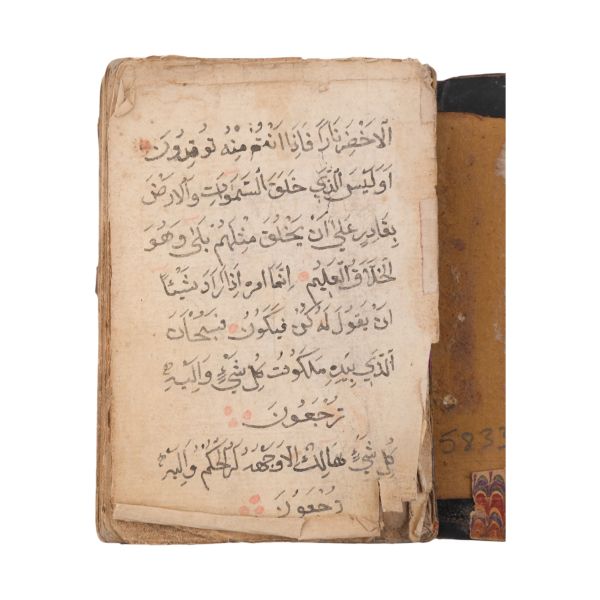 الاَخْضَرِ نَارًا فَاِذَا اَنْتُمْ مِنْهُ تُوقِدُونَ
اَوَلَيْسَ الَّذِي خَلَقَ السَّمٰوَاتِ وَالْاَرْضَ
بِقَادِرٍ عَلٰى اَنْ يَخْلُقَ مِثْلَهُمْ بَلٰى وَهُوَ
الْخَلَّاقُ الْعَلِيمُ اِنَّمَا امره اِذَا اَرَادَ شَيْئًا
اَنْ يَقُولَ لَهُ كُنْ فَيَكُونُ فَسُبْحَانَ
الَّذِي بِيَدِهِ مَلَكُوتُ كُلِّ شَيْءٍ وَاِلَيْهِ
تُرْجَعُونَ
كُلُّ شَيْءٍ هَالِكٌ اِلَّا وَجْهَهُ لَهُ الْحُكْمُ وَاِلَيْهِ
تُرْجَعُونَ
5833